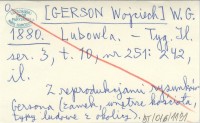 [GERSON Wojciech] W.G.
1880. Lubowla. – Tyg. Il.
ser. 3, t. 10, nr 251: 242,
il.
Z reprodukcjami rysunków
Gersona (zamek, wnętrze kościoła,
typy ludowe z okolicy).